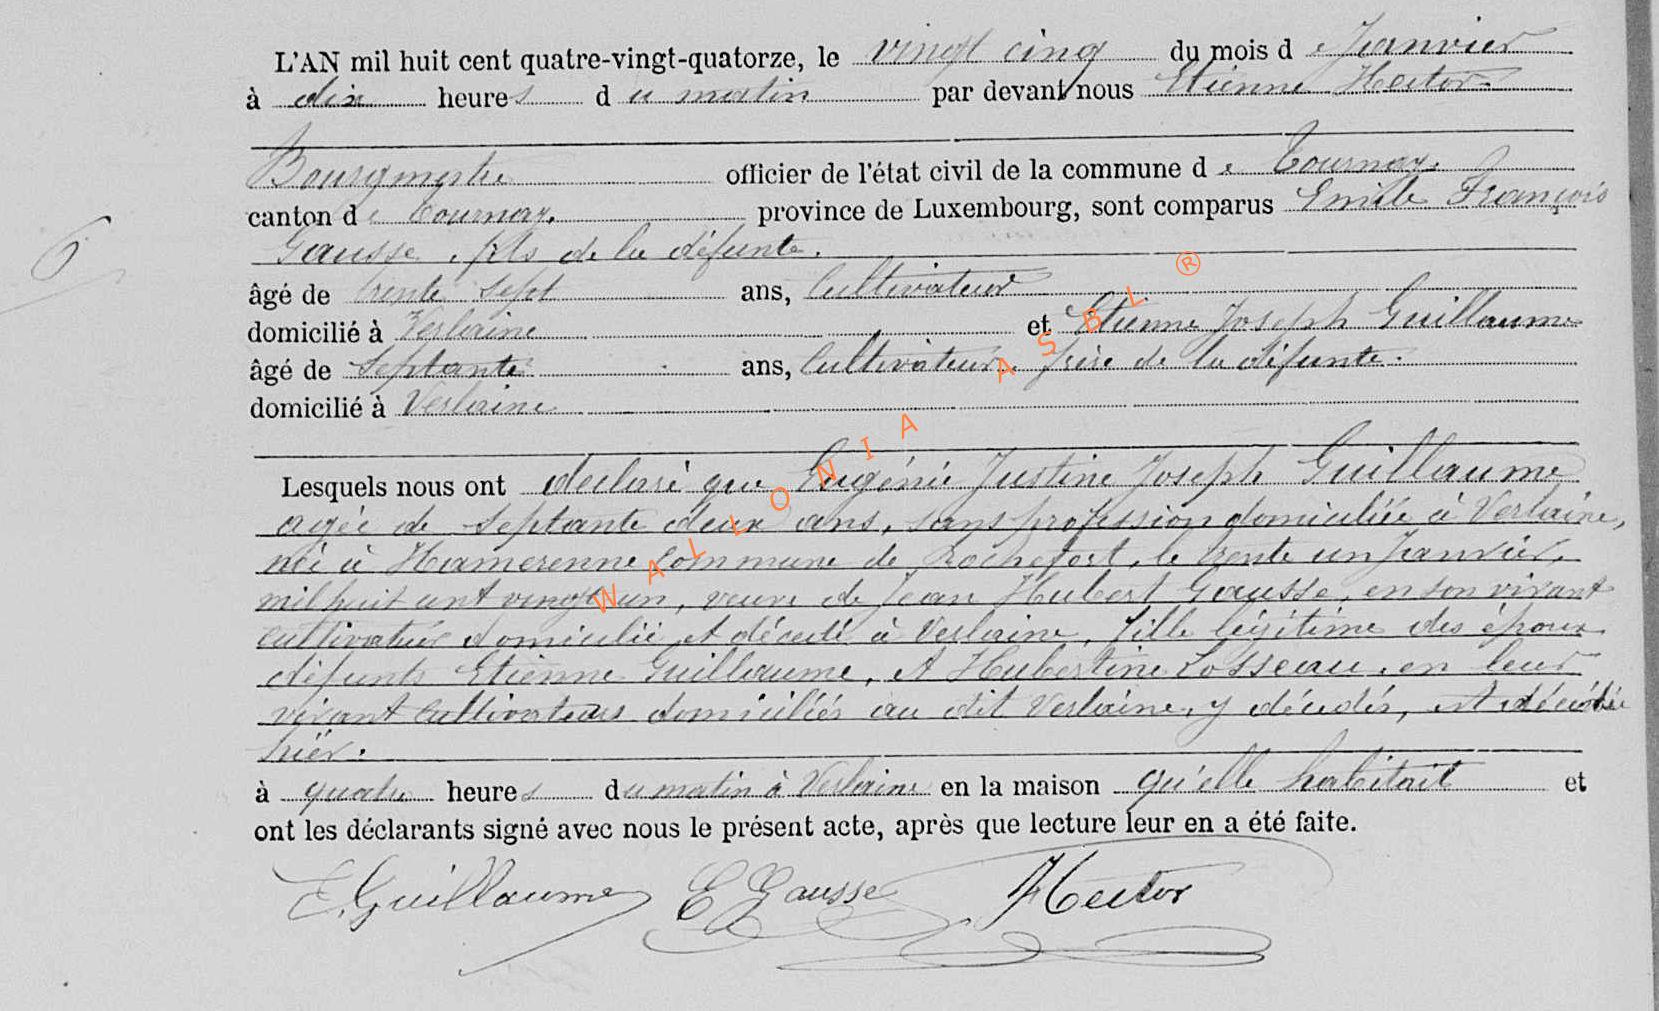 L'AN mil huit cent quatre-vingt-quatorze, le vingt cinq du mois de Janvier
à dix heures du matin par devant nous Etienne Hector
Bourgmestre officier de l'état civil de la commune de Tournay,
canton de Tournay, province de Luxembourg, sont comparus Emile François
Gausse, fils de la défunte.
âgé de trente sept ans, Cultivateur
domicilié à Verlaine et Etienne Joseph Guillaume
âgé de Septante ans, Cultivateur, frère de la défunte.
domicilié à Verlaine
Lesquels nous ont déclaré que Eugénie Justine Joseph Guillaume
agée de septante deux ans, sans profession domiciliée à Verlaine,
née à Hamerenne Commune de Rochefort, le trente un Janvier,
mil huit cent vingt un, veuve de Jean Hubert Gausse, en son vivant
cultivateur domicilié et décédé à Verlaine, fille légitime des époux
défunts Etienne Guillaume, et Hubertine Losseau, en leur
vivant cultivateurs domiciliés au dit Verlaine, y décédés, est décédée
hier.
à quatre heures du matin à Verlaine en la maison qu'elle habitait et
ont les déclarants signé avec nous le présent acte, après que lecture leur en a été faite.
E. Guillaume E Gausse Hector
6
WALLONIA ASBL ®